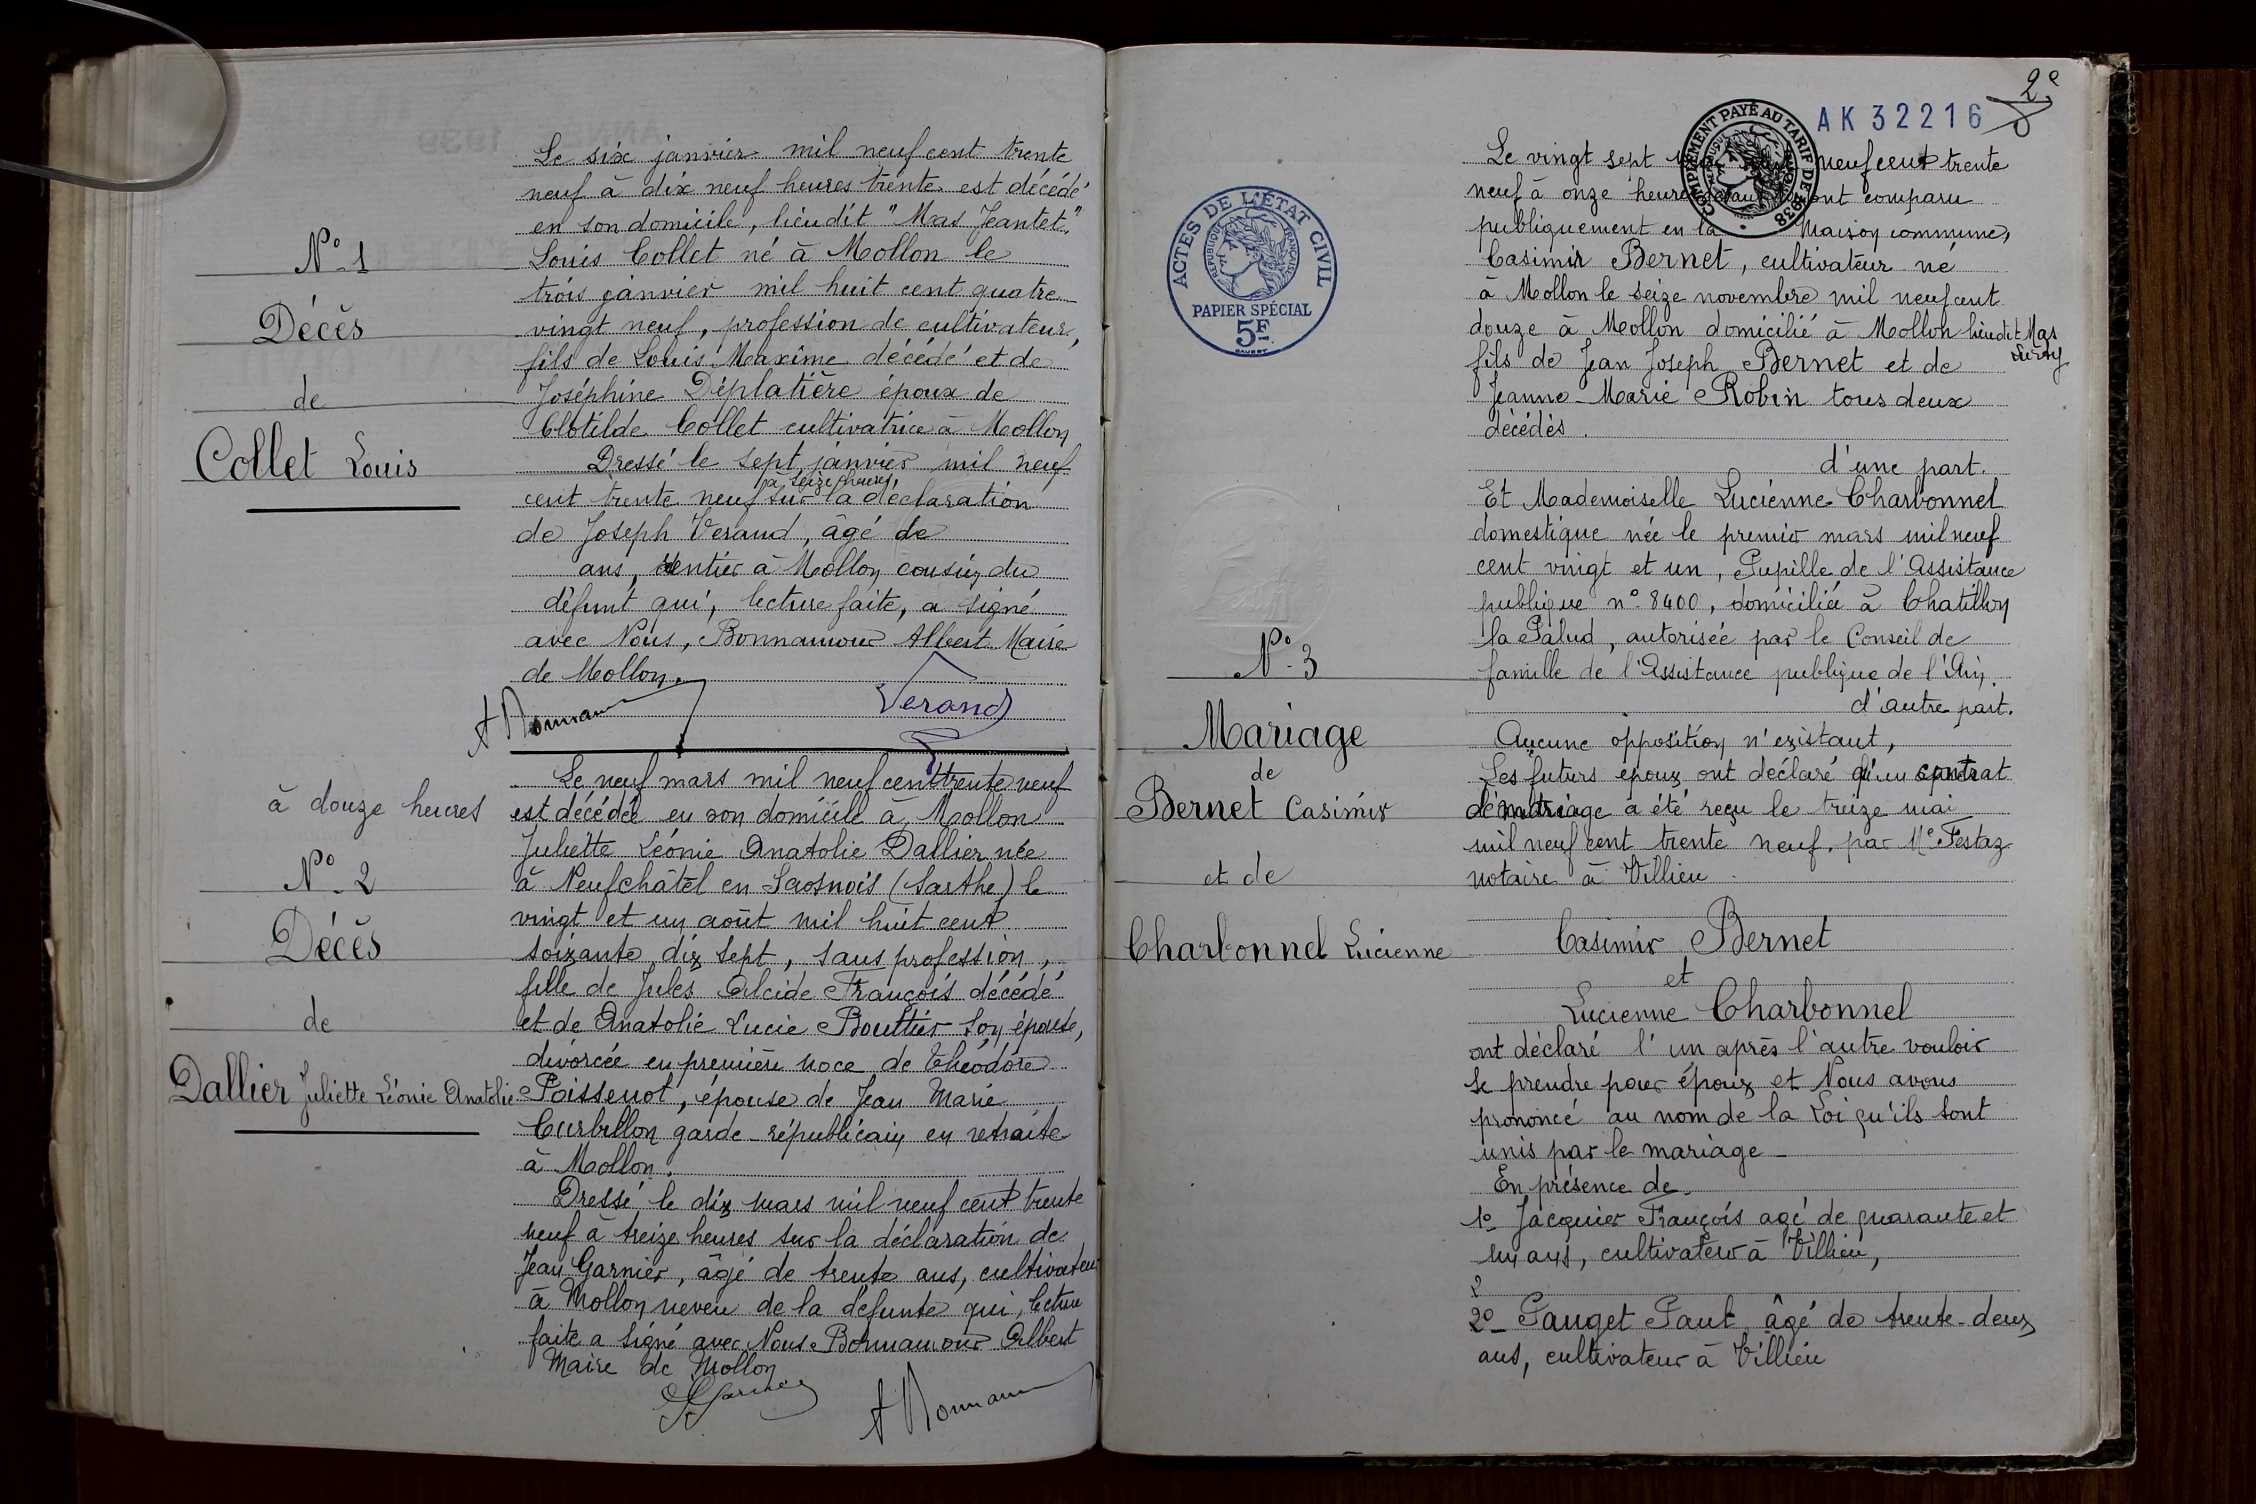 Le six janvier mil neuf cent trente
neuf à dix neuf heures trente est décédé
en son domicile, lieudit "Mas Jeantet"
N° 1
Louis Collet né à Mollon le
trois janvier mil huit cent quatre
Décès
vingt neuf, profession de cultivateur,
fils de Louis Maxime décédé et de
de
Joséphine Déplatière époux de
Clotilde Collet cultivatrice à Mollon
Collet Louis
Dressé le sept janvier mil neuf
à seize heures,
cent trente neuf sur la déclaration
de Joseph Verand, âgé de
ans, rentier à Mollon cousin du
défunt qui, lecture faite, a signé
avec Nous, Bonnamour Albert Maire
de Mollon.
A Bonnamour
Verand
Le neuf mars mil neuf cent trente neuf
à douze heures
est décédée en son domicile à Mollon
Juliette Léonie Anatolie Dallier née
N° 2
à Neufchâtel en Saosnois (Sarthe) le
vingt et un août mil huit cent
Décès
soixante dix sept, sans profession,
fille de Jules Alcide François décédé
de
et de Anatolie Lucie Bouttier son épouse,
divorcée en première noce de Théodore
Dallier Juliette Léonie Anatolie
Poissenot, épouse de Jean Marie
Curbillon garde-républicain en retraite
à Mollon.
Dressé le dix mars mil neuf cent trente
neuf à treize heures sur la déclaration de
Jean Garnier, âgé de trente ans, cultivateur
à Mollon neveu de la défunte qui, lecture
faite a signé avec Nous Bonnamour Albert
Maire de Mollon
Garnier
A Bonnamour
2e
AK 32216
COMPLEMENT PAYÉ AU TARIF DE 1938
ACTES DE L'ÉTAT CIVIL
REPUBLIQUE FRANÇAISE
PAPIER SPÉCIAL
5F
Le vingt sept neuf cent trente
neuf à onze heures devant ont comparu
publiquement en la Maison commune,
Casimir Bernet, cultivateur né
à Mollon le seize novembre mil neuf cent
douze à Mollon domicilié à Mollon lieudit Mas
fils de Jean Joseph Bernet et de
Jeanne-Marie Robin tous deux
décédés.
d'une part.
Et Mademoiselle Lucienne Charbonnel
domestique née le premier mars mil neuf
cent vingt et un, Pupille de l'Assistance
publique n° 8400, domiciliée à Chatillon
la Palud, autorisée par le Conseil de
N° 3
famille de l'Assistance publique de l'Ain.
d'autre part.
Mariage
Aucune opposition n'existant,
de
Les futurs époux ont déclaré qu'un contrat
Bernet Casimir
de mariage a été reçu le treize mai
mil neuf cent trente neuf, par Me Festaz
et de
notaire à Villieu.
Casimir Bernet
Charbonnel Lucienne
et
Lucienne Charbonnel
ont déclaré l'un après l'autre vouloir
se prendre pour époux et Nous avons
prononcé au nom de la Loi qu'ils sont
unis par le mariage
En présence de
1° Jacquier François agé de quarante et
un ans, cultivateur à Villieu,
2
2° Pauget Paul âgé de trente-deux
ans, cultivateur à Villieu